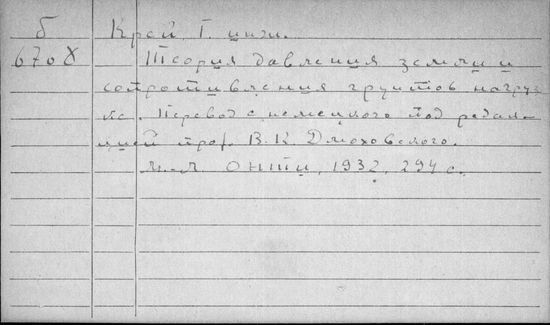 б Крей, Г. инж.
670 Теория давления земли и
сопротивления грунтов нагруз-
ке. Перевод с немецкого под редак-
цией проф. В. К. Дмоховского.
М.-Л. ОНТИ, 1932, 294 с.